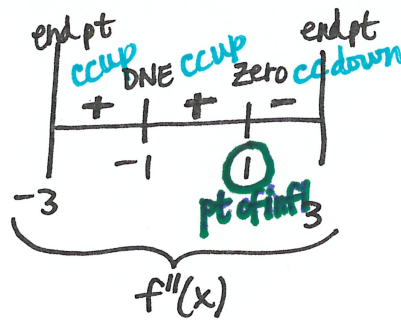 end pt endpt
ccup DNE ccup zero cc down
+ + -
-3 -1 1 3
pt of infl
f"(x)